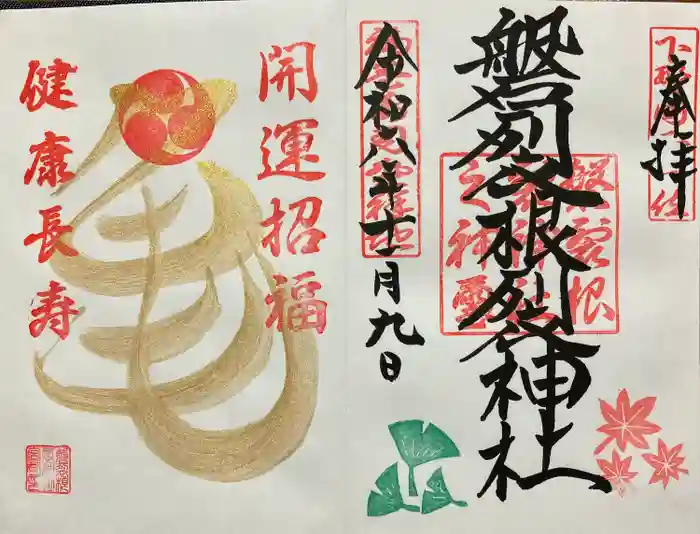 奉拝
磐裂根裂神社
令和六年十一月九日
開運招福
亀
健康長寿